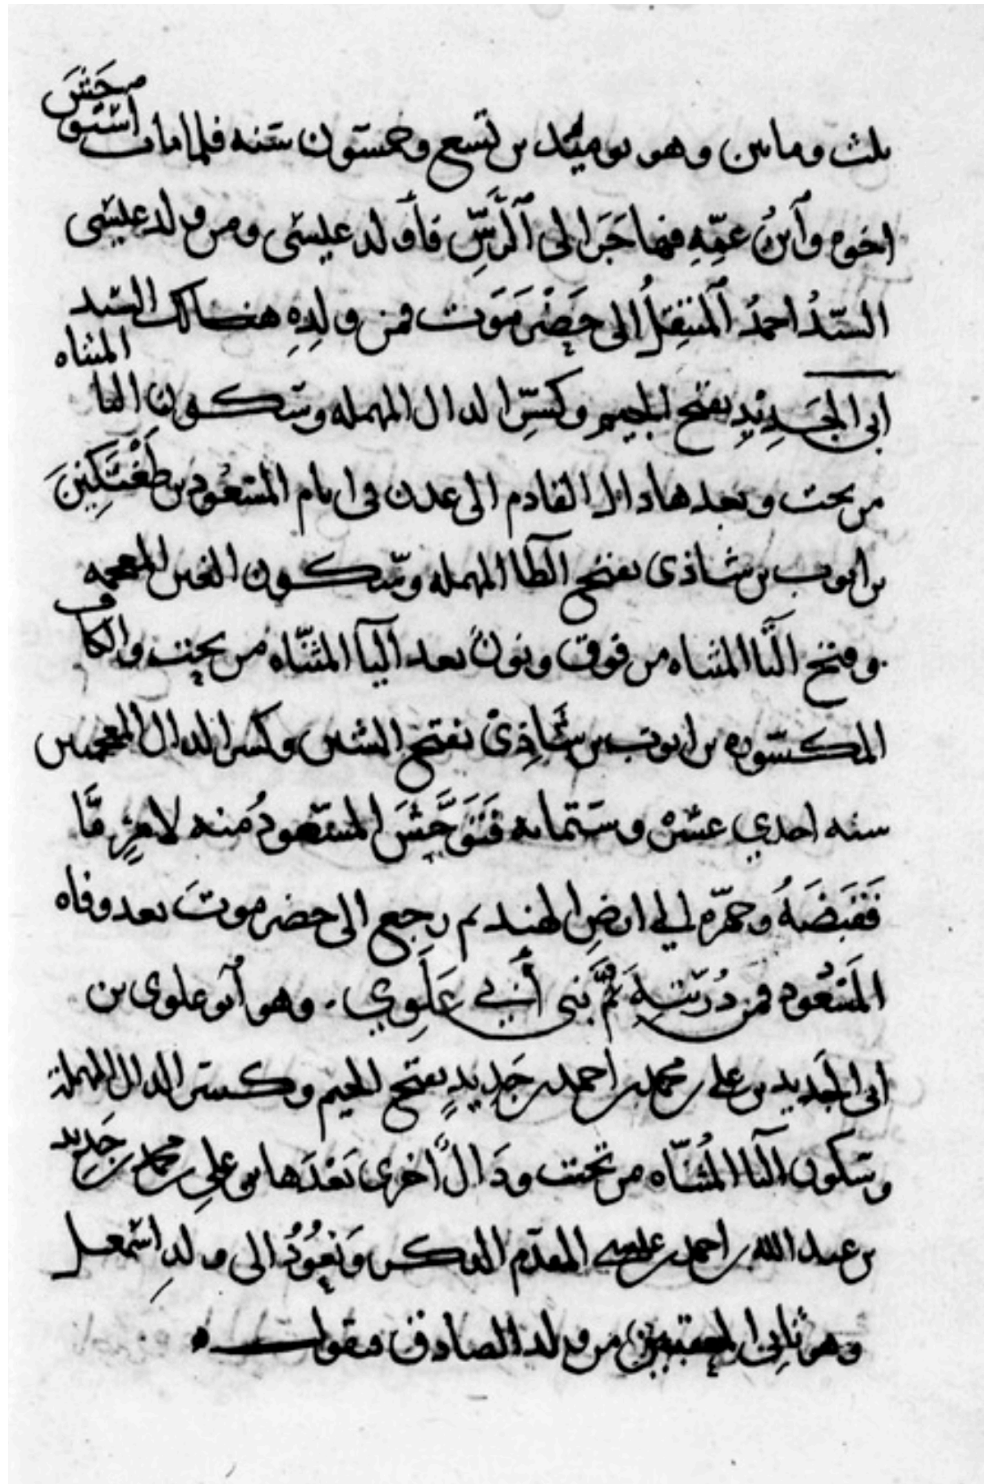 ثلث ومايتين وهو يوميذ بن تسع وخمسون سنه فلما مات استوحش
اخوه وٱبنُ عمِّهِ فهاجَرَا الى ٱلرَّسِّ فأولد عيسى ومن ولد عيسى
السيّدُ احمدُ ٱلمنتقِلُ الى حَضْرَمَوت فمن ولدِهِ هنالك السّيد
ابى الجَدِيْدِ بفتح الجيم وكسرِ الدال المهمله وسكونِ اليا المثناه
من تحت وبعدها دال القادم الى عدن فى ايام المسعُود بن طَغْتَكِينَ
بن ايوب بن شاذى بفتح الطا المهمله وسكون الغين المعجمه
وفتح التَّا المثناه من فوق ونونً بعد اليا المثنّاه من تحت والكاف
المكسوره بن ايوب بن شَاذِىْ بفتح الشين وكسر الدال المعجمتين
سنه احدي عشرْ وستمايه فَتَوَحَّشَ المسعودُ منه لامرٍ مَّا
فَقَبَضَهُ وجهزه الي ارضِ الهند ثم رجع الى حضرموتَ بعد وفاه
المَسْعُود فمن ذُرّيّتِهِ ثَمَّ بَنى أَبِي عَلَوِي . وهو أبو علوى بن
ابى الجَديد بن على بن محمد بن احمد بن جَدِيدٍ بفتح الجيم وكسر الدال المهملة
وسكون اليا المُثنّاه من تحت ودَالً اخرى بَعْدَها بن علي بن محمد بن جَدِيد
بن عبد الله بن احمد بن عيسى المقدّم الذكر وَنَعُوْدُ الى ولدِ اسْمعيل
وهو ثانِى المعقبين من ولد الصادق فنقول